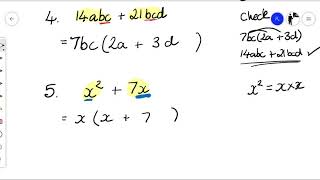 4. 14abc + 21bcd
= 7bc (2a + 3d )
check
7bc(2a + 3d)
14abc + 21bcd ✓
5. x² + 7x
= x ( x + 7 )
x² = x × x